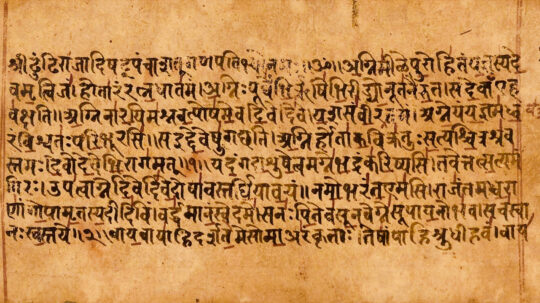 श्रीढुंढिराजादिषट्पंचाशत्गणपतिभ्यो नमः ॥ॐ॥ अग्निमीळे पुरोहितं यज्ञस्य दे
वमृत्विजं॥ होतारं रत्नधातमं॥ अग्निः पूर्वेभिर्ऋषिभिरीड्यो नूतनैरुत॥ स देवाँ एह
वक्षति॥ अग्निना रयिमश्नवत्पोषमेव दिवेदिवे॥ यशसं वीरवत्तमं॥ अग्ने यं यज्ञमध्व
रं विश्वतः परिभूरसि॥ स इद्देवेषु गच्छति॥ अग्निर्होता कविक्रतुः सत्यश्चित्रश्रव
स्तमः॥ देवो देवेभिरागमत्॥१॥ यदंग दाशुषे त्वमग्ने भद्रं करिष्यसि॥ तवेत्तत्सत्यमं
गिरः॥ उप त्वाग्ने दिवेदिवे दोषावस्तर्धिया वयं॥ नमो भरंत एमसि॥ राजंतमध्वरा
णां गोपामृतस्य दीदिविं॥ वर्द्धमानं स्वे दमे॥ स नः पितेव सूनवेग्ने सूपायनो भव॥ सचस्वा
नः स्वस्तये॥२॥ वायवायाहि दर्शतेमे सोमा अरंकृताः॥ तेषां पाहि श्रुधी हवं॥ वाय